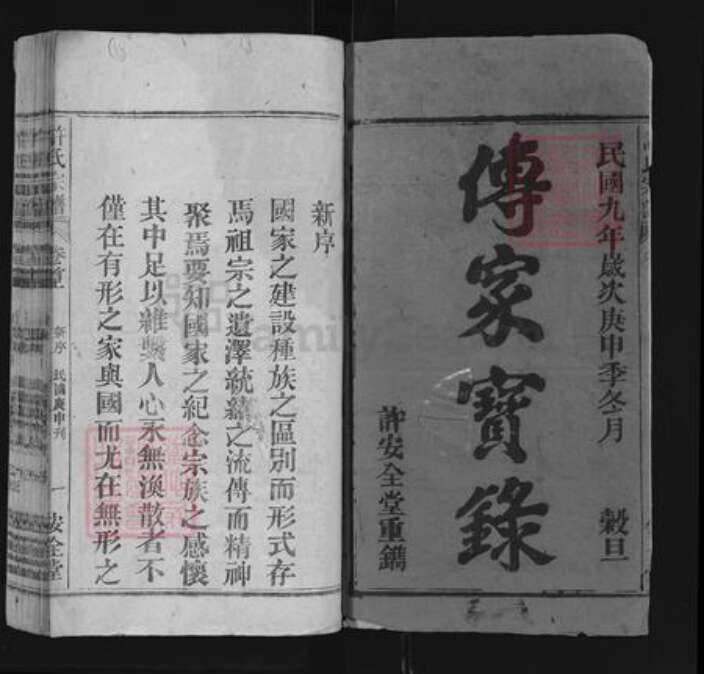 民國九年歲次庚申季冬月 穀旦
傳家寶錄
許安全堂重鐫
新序
國家之建設種族之區別而形式存
焉祖宗之遺澤統緒之流傳而精神
聚焉要知國家之紀念宗族之感懷
其中足以維繫人心永無渙散者不
僅在有形之家與國而尤在無形之
許氏宗譜 卷首 新序 民國庚申刊 一 安全堂